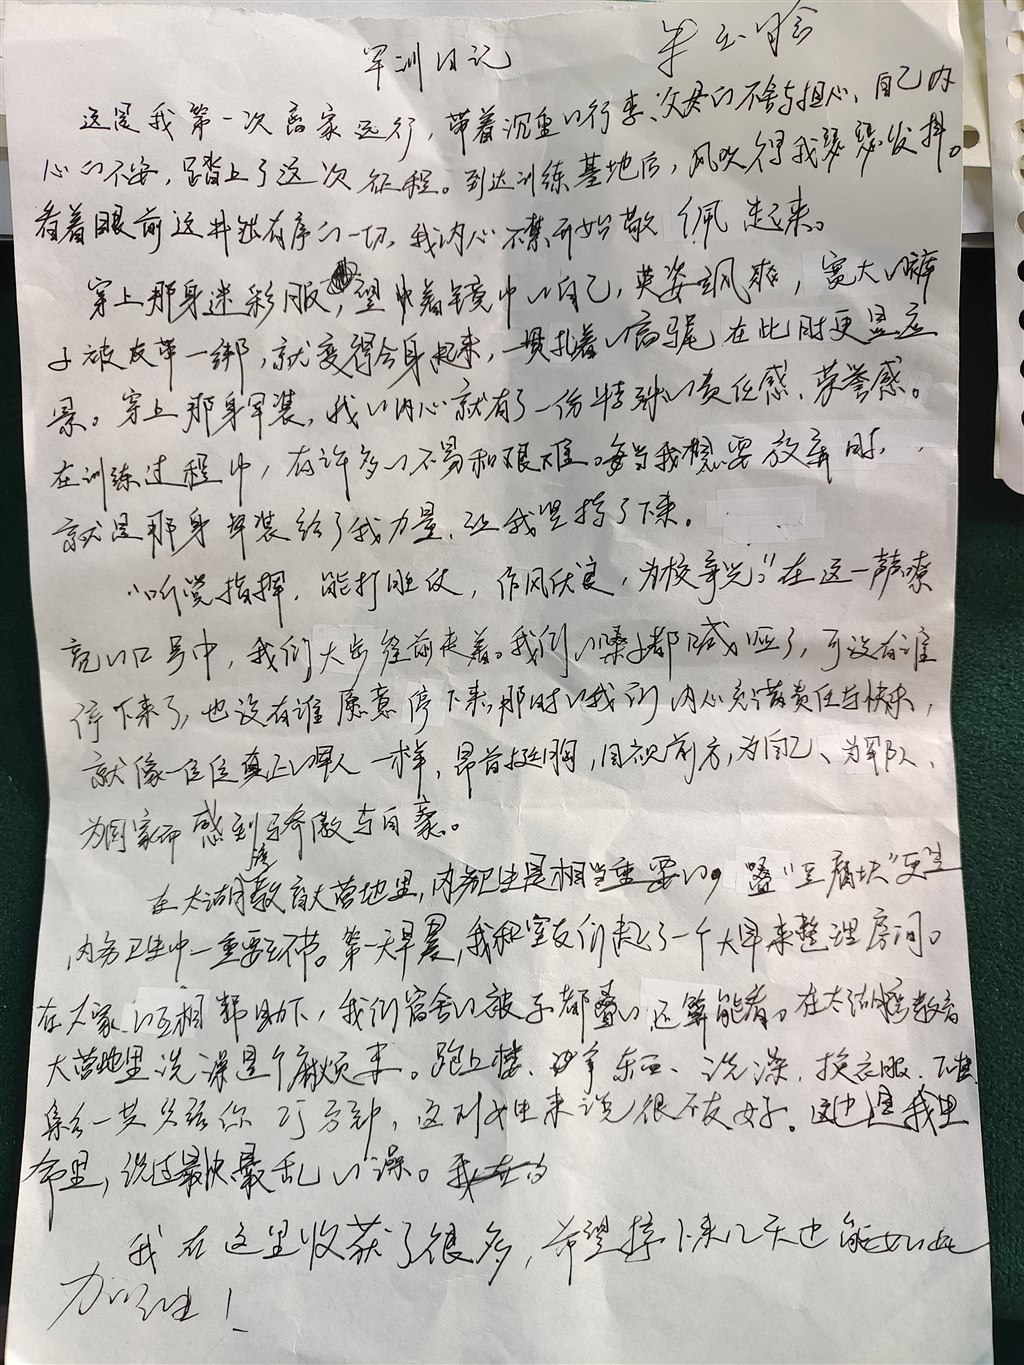 军训日记
这是我第一次离家远行，带着沉重的行李、父母的不舍与担心、自己内
心的不安，踏上了这次征程。到达训练基地后，风吹得我瑟瑟发抖。
看着眼前这井然有序的一切，我内心不禁开始敬佩起来。
穿上那身迷彩服，望着镜中的自己，英姿飒爽，宽大的裤
子被皮带一绑，就变得合身起来，一贯扎着的高马尾在此时更显应
景。穿上那身军装，我的内心就有了一份特殊的责任感、荣誉感。
在训练过程中，有许多的不易和艰难。每当我想要放弃时，
就是那身军装给了我力量，让我坚持了下来。
“听党指挥，能打胜仗，作风优良，为校争光。”在这一声声嘹
亮的口号中，我们大步往前走着。我们的嗓子都喊哑了，可没有谁
停下来了，也没有谁愿意停下来，那时的我们内心充满责任与快乐，
就像一位位真正的军人一样，昂首挺胸，目视前方，为自己、为军队、
为国家而感到骄傲与自豪。
在太湖湾教育大营地里，内务卫生是相当重要的，叠“豆腐块”更是
内务卫生中一重要环节。第一天早晨，我和室友们起了一个大早来整理房间。
在大家的互相帮助下，我们宿舍的被子都叠的还算能看。在太湖湾教育
大营地里洗澡是个麻烦事。跑上楼、拿东西、洗澡、换衣服、下楼
集合一共只给你 分钟，这对女生来说很不友好。这也是我生
命里，洗过最快最乱的澡。
我在这里收获了很多，希望接下来几天也能如此
加油！